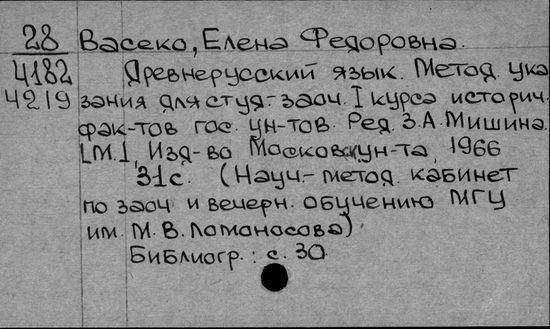 28 Васеко, Елена Федоровна.
4182 Древнерусский язык. Метод. ука
4219 зания для студ.-заоч. I курса историч.
фак-тов гос. ун-тов. Ред. З.А. Мишина.
[М.], Изд-во Московск. ун-та, 1966
31с. (Науч.-метод. кабинет
по заоч. и вечерн. обучению МГУ
им. М.В. Ломоносова)
Библиогр.: с. 30.